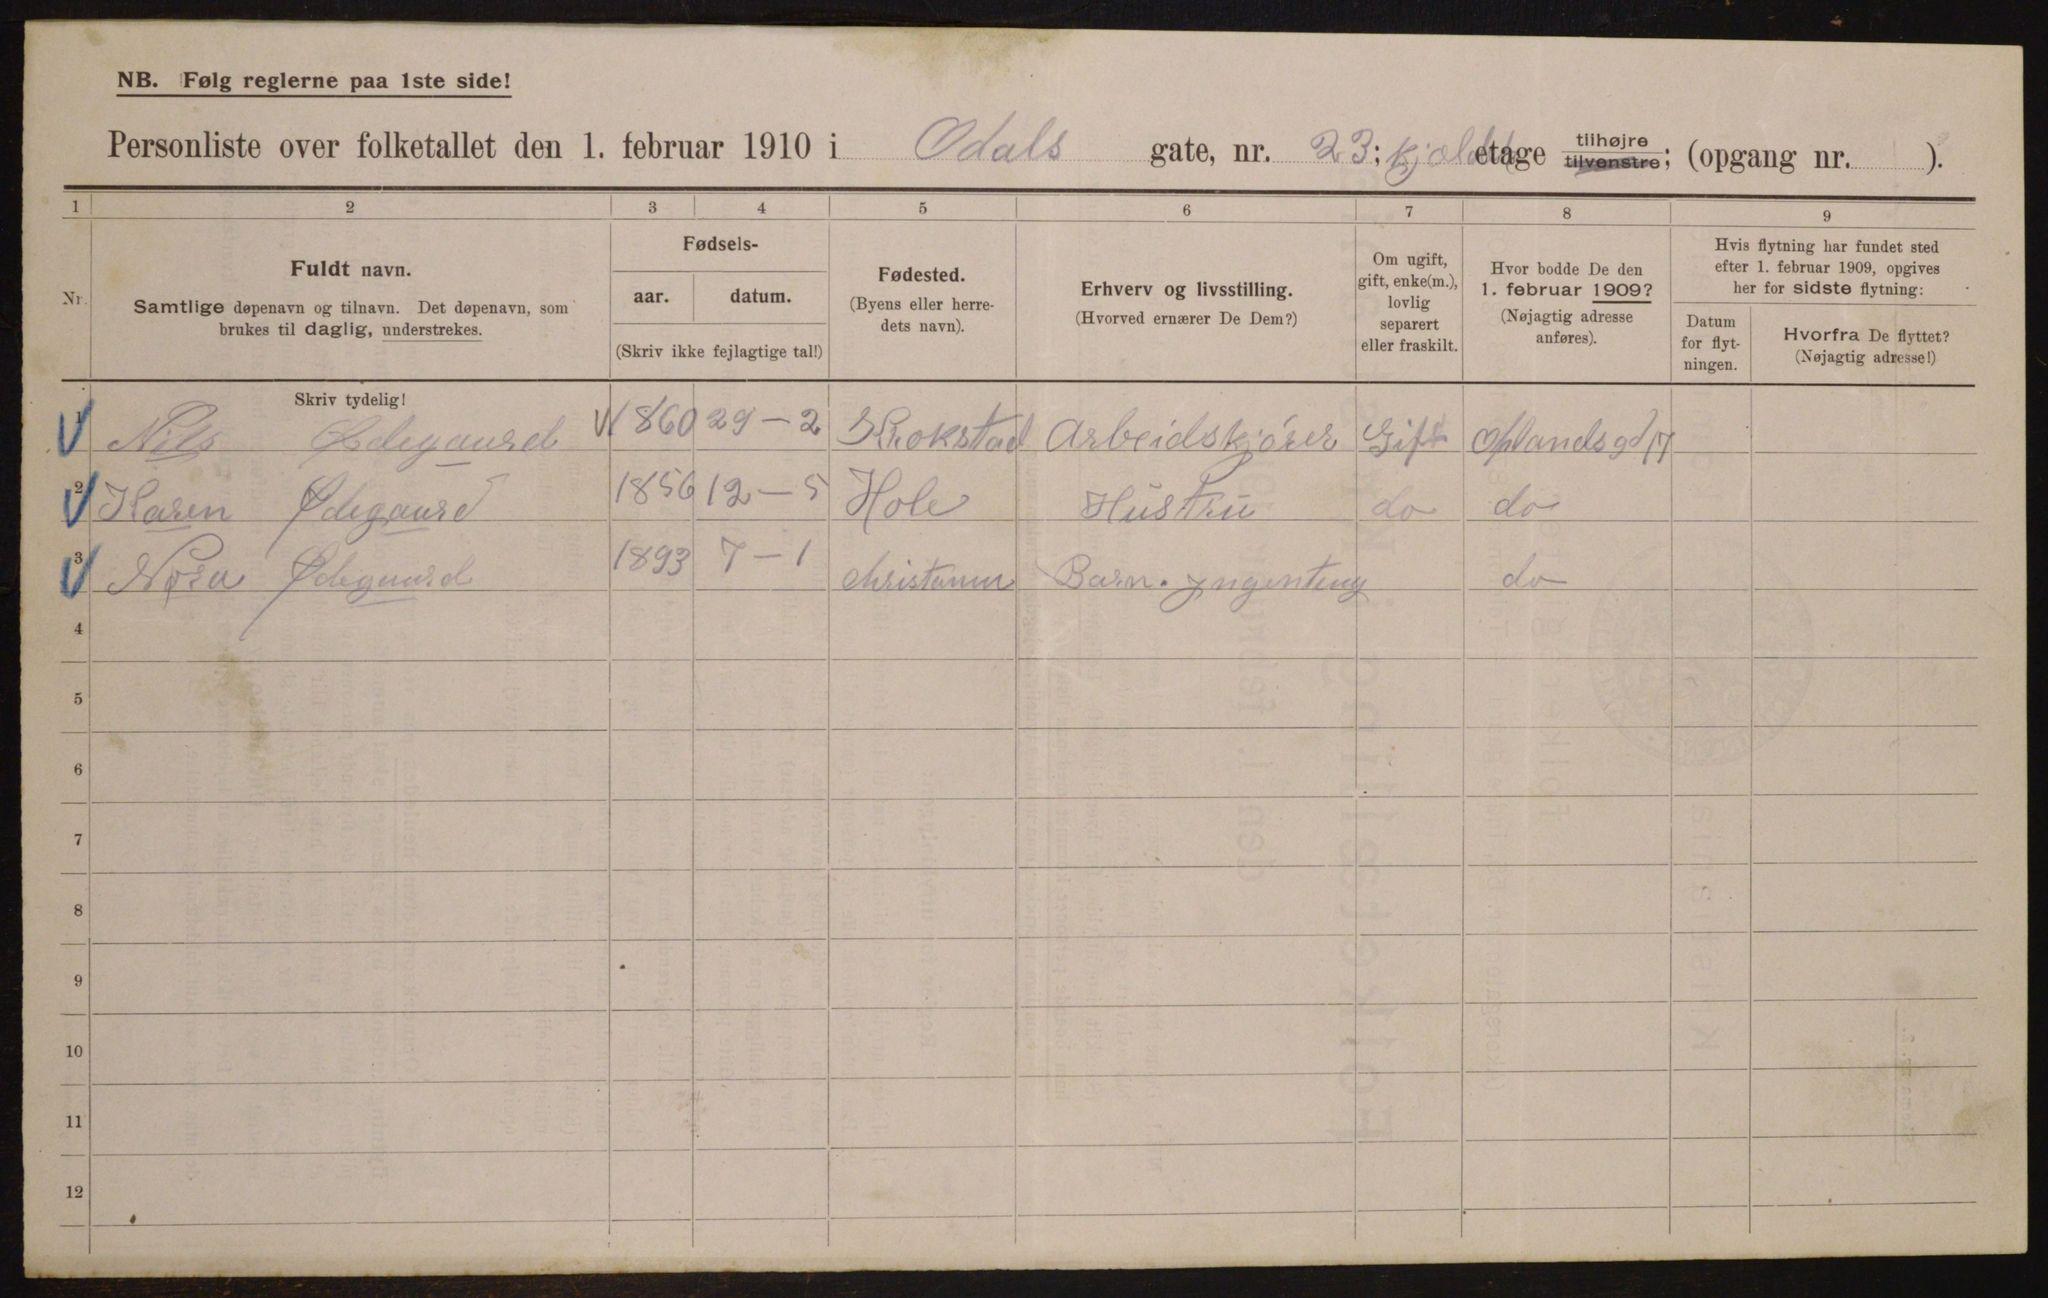 NB. Følg reglerne paa 1ste side!
Personliste over folketallet den 1. februar 1910 i Odals gate, nr. 23; kjelder etage tilhøjre tilvenstre; (opgang nr. ).
1 2 3 4 5 6 7 8 9
Nr.
Fuldt navn.
Samtlige døpenavn og tilnavn. Det døpenavn, som
brukes til daglig, understrekes.
Skriv tydelig!
Fødsels-
aar. datum.
(Skriv ikke fejlagtige tal!)
Fødested.
(Byens eller herre-
dets navn).
Erhverv og livsstilling.
(Hvorved ernærer De Dem?)
Om ugift,
gift, enke(m.),
lovlig
separert
eller fraskilt.
Hvor bodde De den
1. februar 1909?
(Nøjagtig adresse
anføres).
Hvis flytning har fundet sted
efter 1. februar 1909, opgives
her for sidste flytning:
Datum
for flyt-
ningen.
Hvorfra De flyttet?
(Nøjagtig adresse!)
1 Nils Ødegaard 1860 29-2 Krokstad Arbeidskjører Gift Oplandsgd 17
2 Karen Ødegaard 1856 12-5 Hole Hustru do do
3 Nora Ødegaard 1893 7-1 Barn. Ingenting do
4
5
6
7
8
9
10
11
12